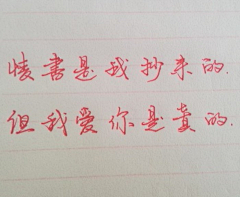 情书是我抄来的.
但我爱你是真的.